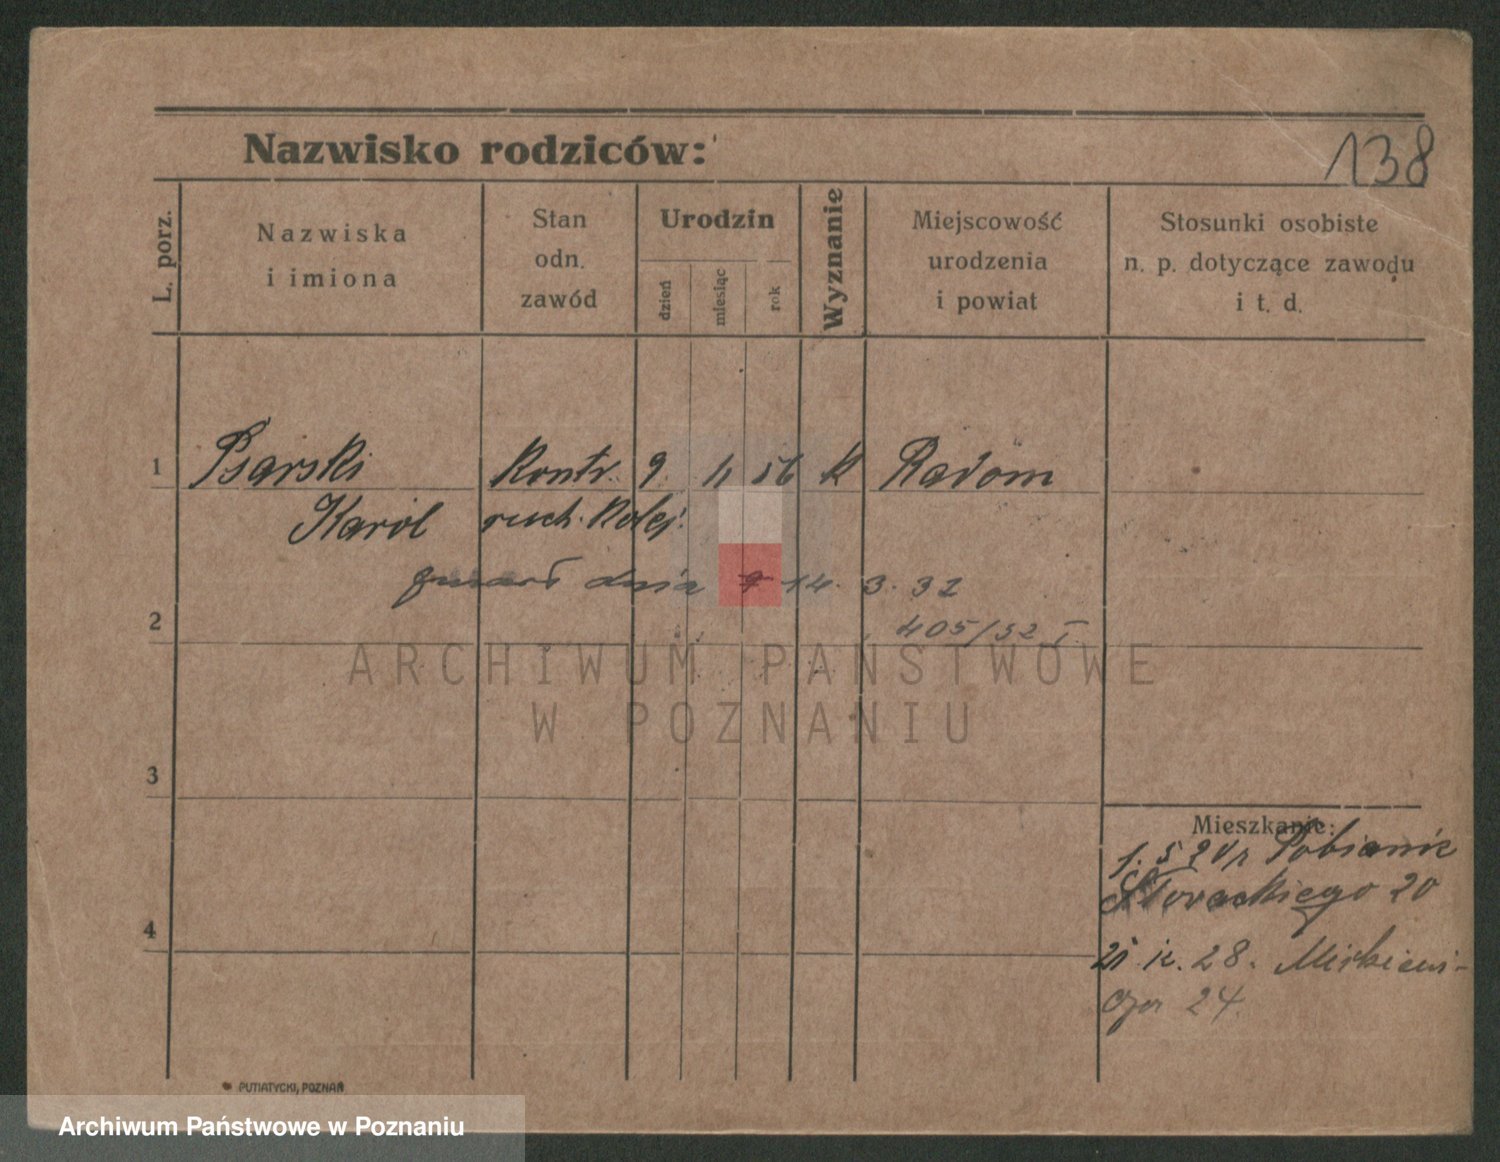 138
Nazwisko rodziców:
L. porz.
Nazwiska
i imiona
Stan
odn.
zawód
Urodzin
dzień
miesiąc
rok
Wyznanie
Miejscowość
urodzenia
i powiat
Stosunki osobiste
n. p. dotyczące zawodu
i t. d.
1 Psarski Kontr. 9. 11 56 k Radom
Karol ruch. Kolej.
zmarł dnia 14. 3. 32
2 405/32
ARCHIWUM PAŃSTWOWE
W POZNANIU
3
Mieszkanie:
1. 5 Pobianic
Słowackiego 20
4
28. Mickiewi-
cza 24.
PUTIATYCKI, POZNAŃ
Archiwum Państwowe w Poznaniu